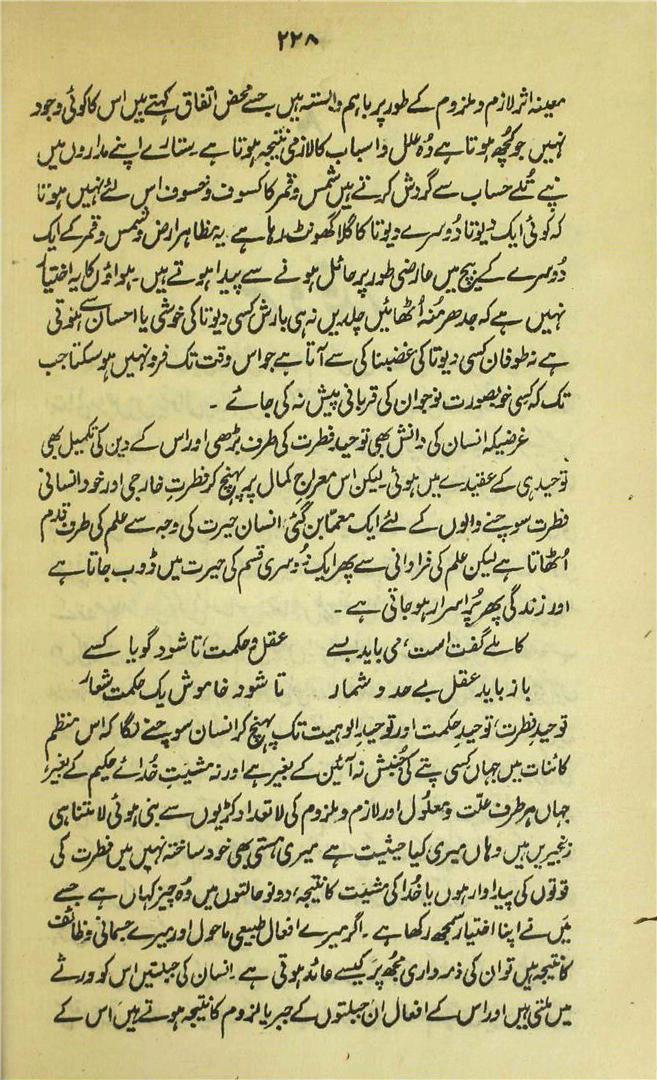 ۲۲۸
معینہ اثر لازم و ملزوم کے طور پر باہم وابستہ ہیں جسے محض اتفاق کہتے ہیں اس کا کوئی وجود
نہیں جو کچھ ہوتا ہے وُہ علل و اسباب کا لازمی نتیجہ ہوتا ہے۔ ستارے اپنے مداروں میں
نپے تُلے حساب سے گردش کرتے ہیں شمس و قمر کا کسوف و خسوف اس لئے نہیں ہوتا
کہ کوئی ایک دیوتا دُوسرے دیوتا کا گلا گھونٹ رہا ہے۔ یہ مظاہر ارض و شمس و قمر کے ایک
دُوسرے کے بیچ میں عارضی طور پر حائل ہونے سے پیدا ہوتے ہیں۔ ہواؤں کا یہ اختیار
نہیں ہے کہ جدھر مُنہ اُٹھائیں چلدیں نہ ہی بارش کسی دیوتا کی خوشی یا احسان سے ہوتی
ہے نہ طوفان کسی دیوتا کی غضبناکی سے آتا ہے جو اس وقت تک فرو نہیں ہو سکتا جب
تک کہ کسی خوبصورت نوجوان کی قربانی پیش نہ کی جائے ۔
غرضیکہ انسان کی دانش بھی توحیدِ فطرت کی طرف بڑھی اور اس کے دین کی تکمیل بھی
توحید ہی کے عقیدے میں ہوئی۔ لیکن اس معراجِ کمال پر پہنچ کر فطرتِ خارجی اور خود انسانی
فطرت سوچنے والوں کے لئے ایک معمّا بن گئی۔ انسان حیرت کی وجہ سے علم کی طرف قدم
اُٹھاتا ہے لیکن علم کی فراوانی سے پھر ایک دُوسری قسم کی حیرت میں ڈوب جاتا ہے
اور زندگی پھر پُر اسرار ہو جاتی ہے ۔
کاملے گفت است، می باید بسے عقل و حکمت، تا شود گویا کسے
باز باید عقل بے حد و شمار تا شود خاموش یک حکمت شعار
توحیدِ فطرت، توحیدِ حکمت اور توحیدِ الوہیت تک پہنچ کر انسان سوچنے لگا کہ اس منظم
کائنات میں جہاں کسی پتے کی جُنبش نہ آئین کے بغیر ہے اور نہ مشیتِ خُدائے حکیم کے بغیر،
جہاں ہر طرف علّت و معلُول اور لازم و ملزوم کی لاتعداد کڑیوں سے بنی ہوئی لامتناہی
زنجیریں ہیں وہاں میری کیا حیثیت ہے میری ہستی بھی خود ساختہ نہیں میں فطرت کی
قوتوں کی پیداوار ہوں یا خُدا کی مشیت کا نتیجہ، دونو حالتوں میں وُہ چیز کہاں ہے جسے
میں نے اپنا اختیار سمجھ رکھا ہے ۔ اگر میرے افعال طبیعی ماحول اور میرے جسمانی وظائف
کا نتیجہ ہیں تو ان کی ذمہ واری مجھ پر کیسے عائد ہوتی ہے ۔ انسان کی جبلتیں اس کو ورثے
میں ملتی ہیں اور اس کے افعال ان جبلتوں کے جبر یا لزوم کا نتیجہ ہوتے ہیں اس کے